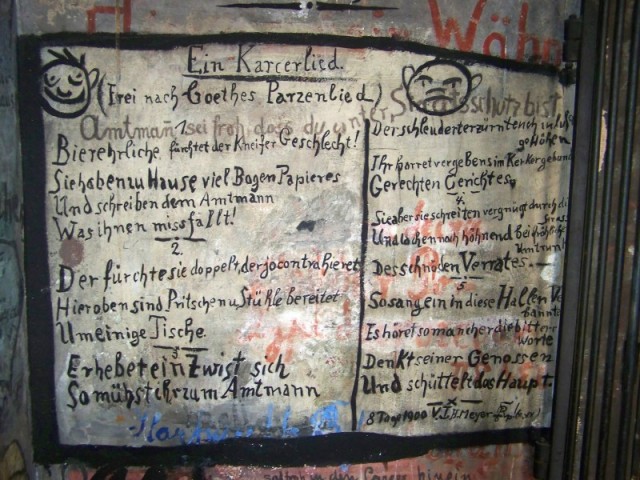 Wäh
Ein Karcerlied.
(Frei nach Goethes Parzenlied.)
Staatsschutz bist
Amtmann sei froh dass du unter
1.
Bierehrliche fürchtet der Kneifer Geschlecht!
Sie haben zu Hause viel Bogen Papieres
Und schreiben dem Amtmann
Was ihnen missfällt!
2.
Der fürchte sie doppelt, der jo contrahieret
Hieroben sind Pritschen u. Stühle bereitet
Um einige Tische.
3
Erhebet ein Zwist sich
So müsst ihr zum Amtmann
Der schleudert erzürnt euch in
Höhen
Ihr harret vergebens im Kerker gebunden
Gerechten Gerichtes,
4.
Sie aber sie schreiten vergnügt durch die
Und lachen noch höhnend bei
Des schnöden Verrates.
5
So sang ein in diese Hallen Ver
bannter
Es höret so mancher die bittern
Worte
Denkt seiner Genossen
Und schüttelt das Haupt.
8 Tage 1900 V. I. H. Meyer